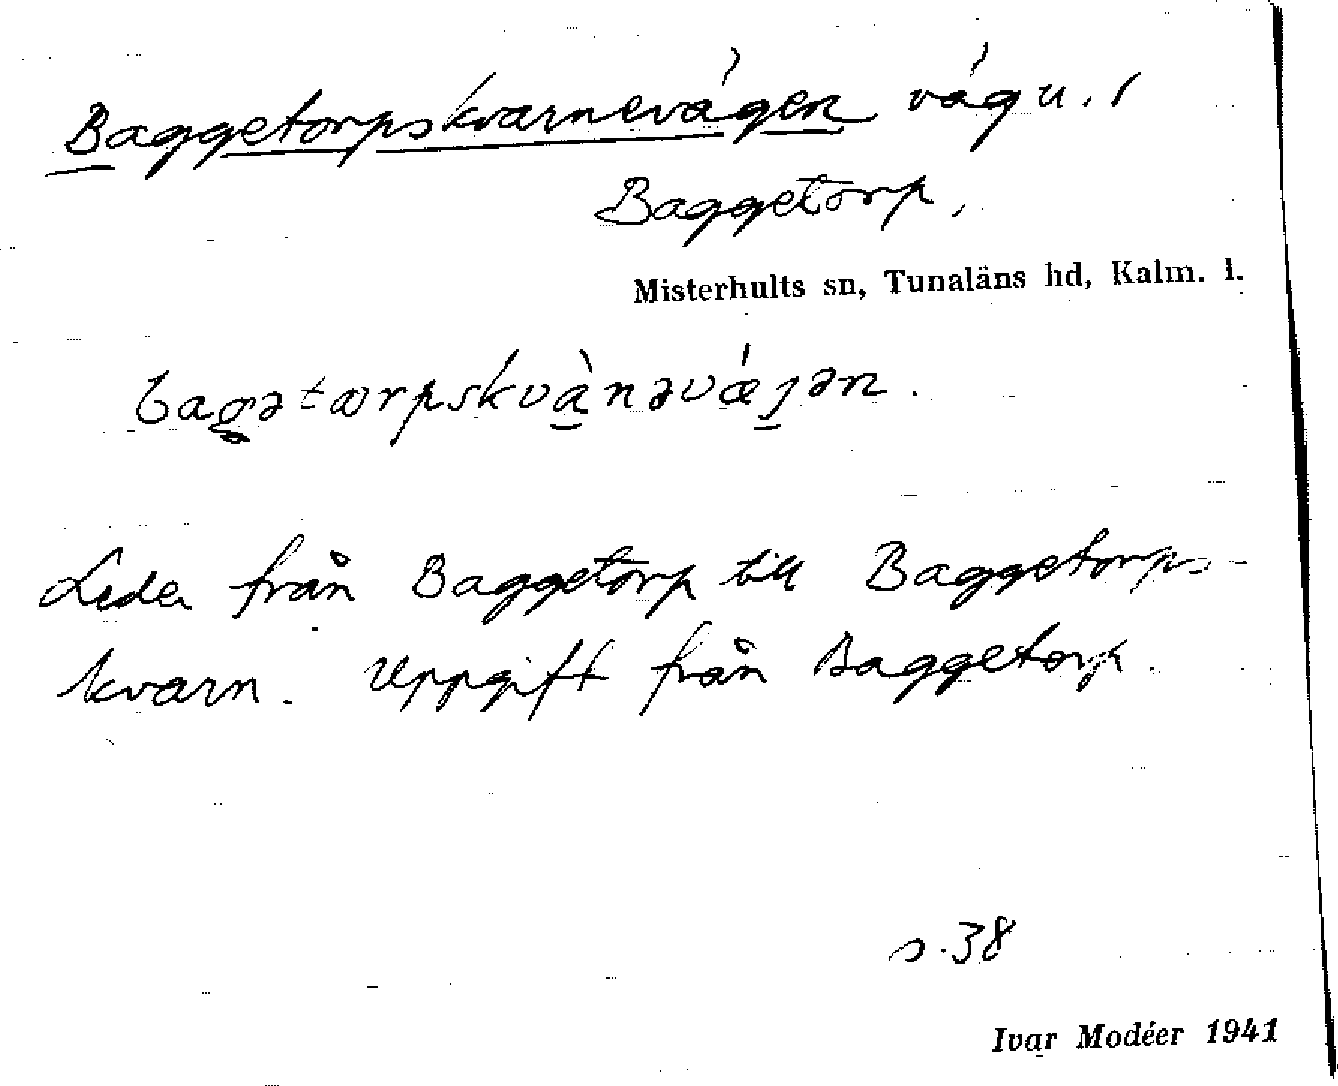 Baggetorpskvarnevägen väg u. /
Baggetorp.
Misterhults sn, Tunaläns hd, Kalm. l.
bagətærpskvànəvæ̀jən.
Leder från Baggetorp till Baggetorps-
kvarn. Uppgift från Baggetorp.
s. 38
Ivar Modéer 1941